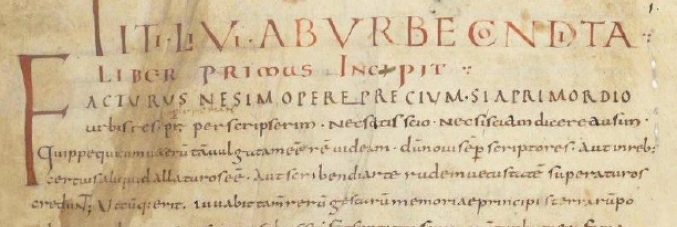 1.
TITI·LIVI·AB VRBE CONDITA
LIBER PRIMUS INCIPIT
FACTURUS NE SIM OPERE PRECIUM·SI A PRIMORDIO
urbis res pr perscripserim· Nec satis scio· nec si sciam dicere ausim·
Quippe qui cum tā uulgatam eē rē uideam· dū noui sēp scriptores· aut in reb;
certius aliquid allaturos eē· Aut scribendi arte rudem uetustatē superaturos
credunt; Utcūq; erit· iuuabit tam̄ rerū gestarū memoriae principis terrarū po